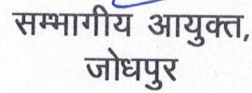 सम्भागीय आयुक्त,
जोधपुर